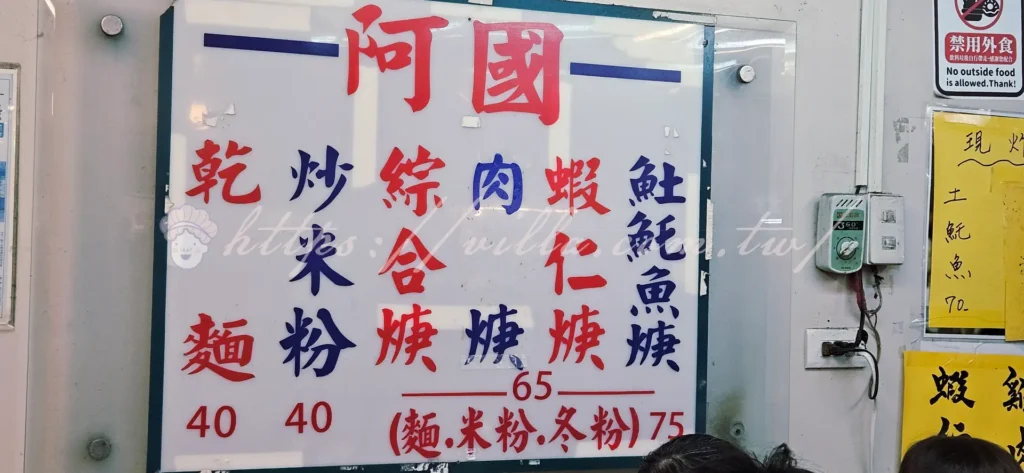 阿國
魠魠魚焿
蝦仁焿
肉焿
綜合焿
炒米粉
乾麵
65
40
40
(麵.米粉.冬粉)75
禁用外食
No outside food
is allowed.Thank!
土魠魚
70
蝦仁
https://villa.com.tw/